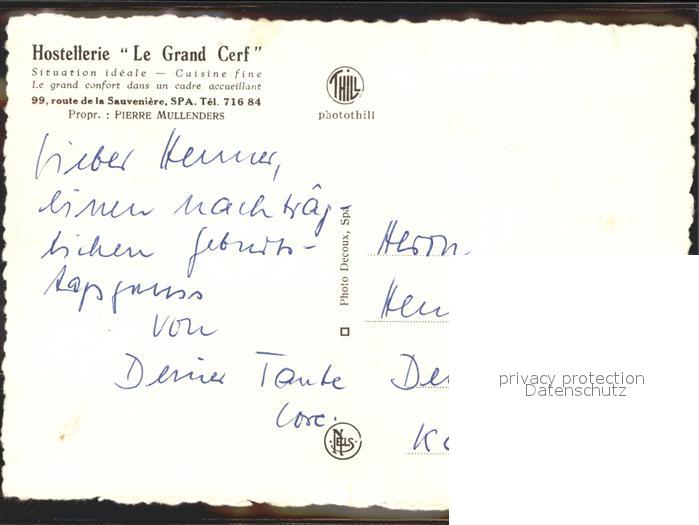 Hostellerie “Le Grand Cerf”
Situation idéale — Cuisine fine
Le grand confort dans un cadre accueillant
99, route de la Sauvenière, SPA. Tél. 716 84
Propr. : PIERRE MULLENDERS
THILL
photothill
Lieber Henner,
einen nachträg-
lichen Geburts-
tagsgruss
von
Deiner Tante
Photo Decoux, Spa
NELS
Herrn
privacy protection
Datenschutz